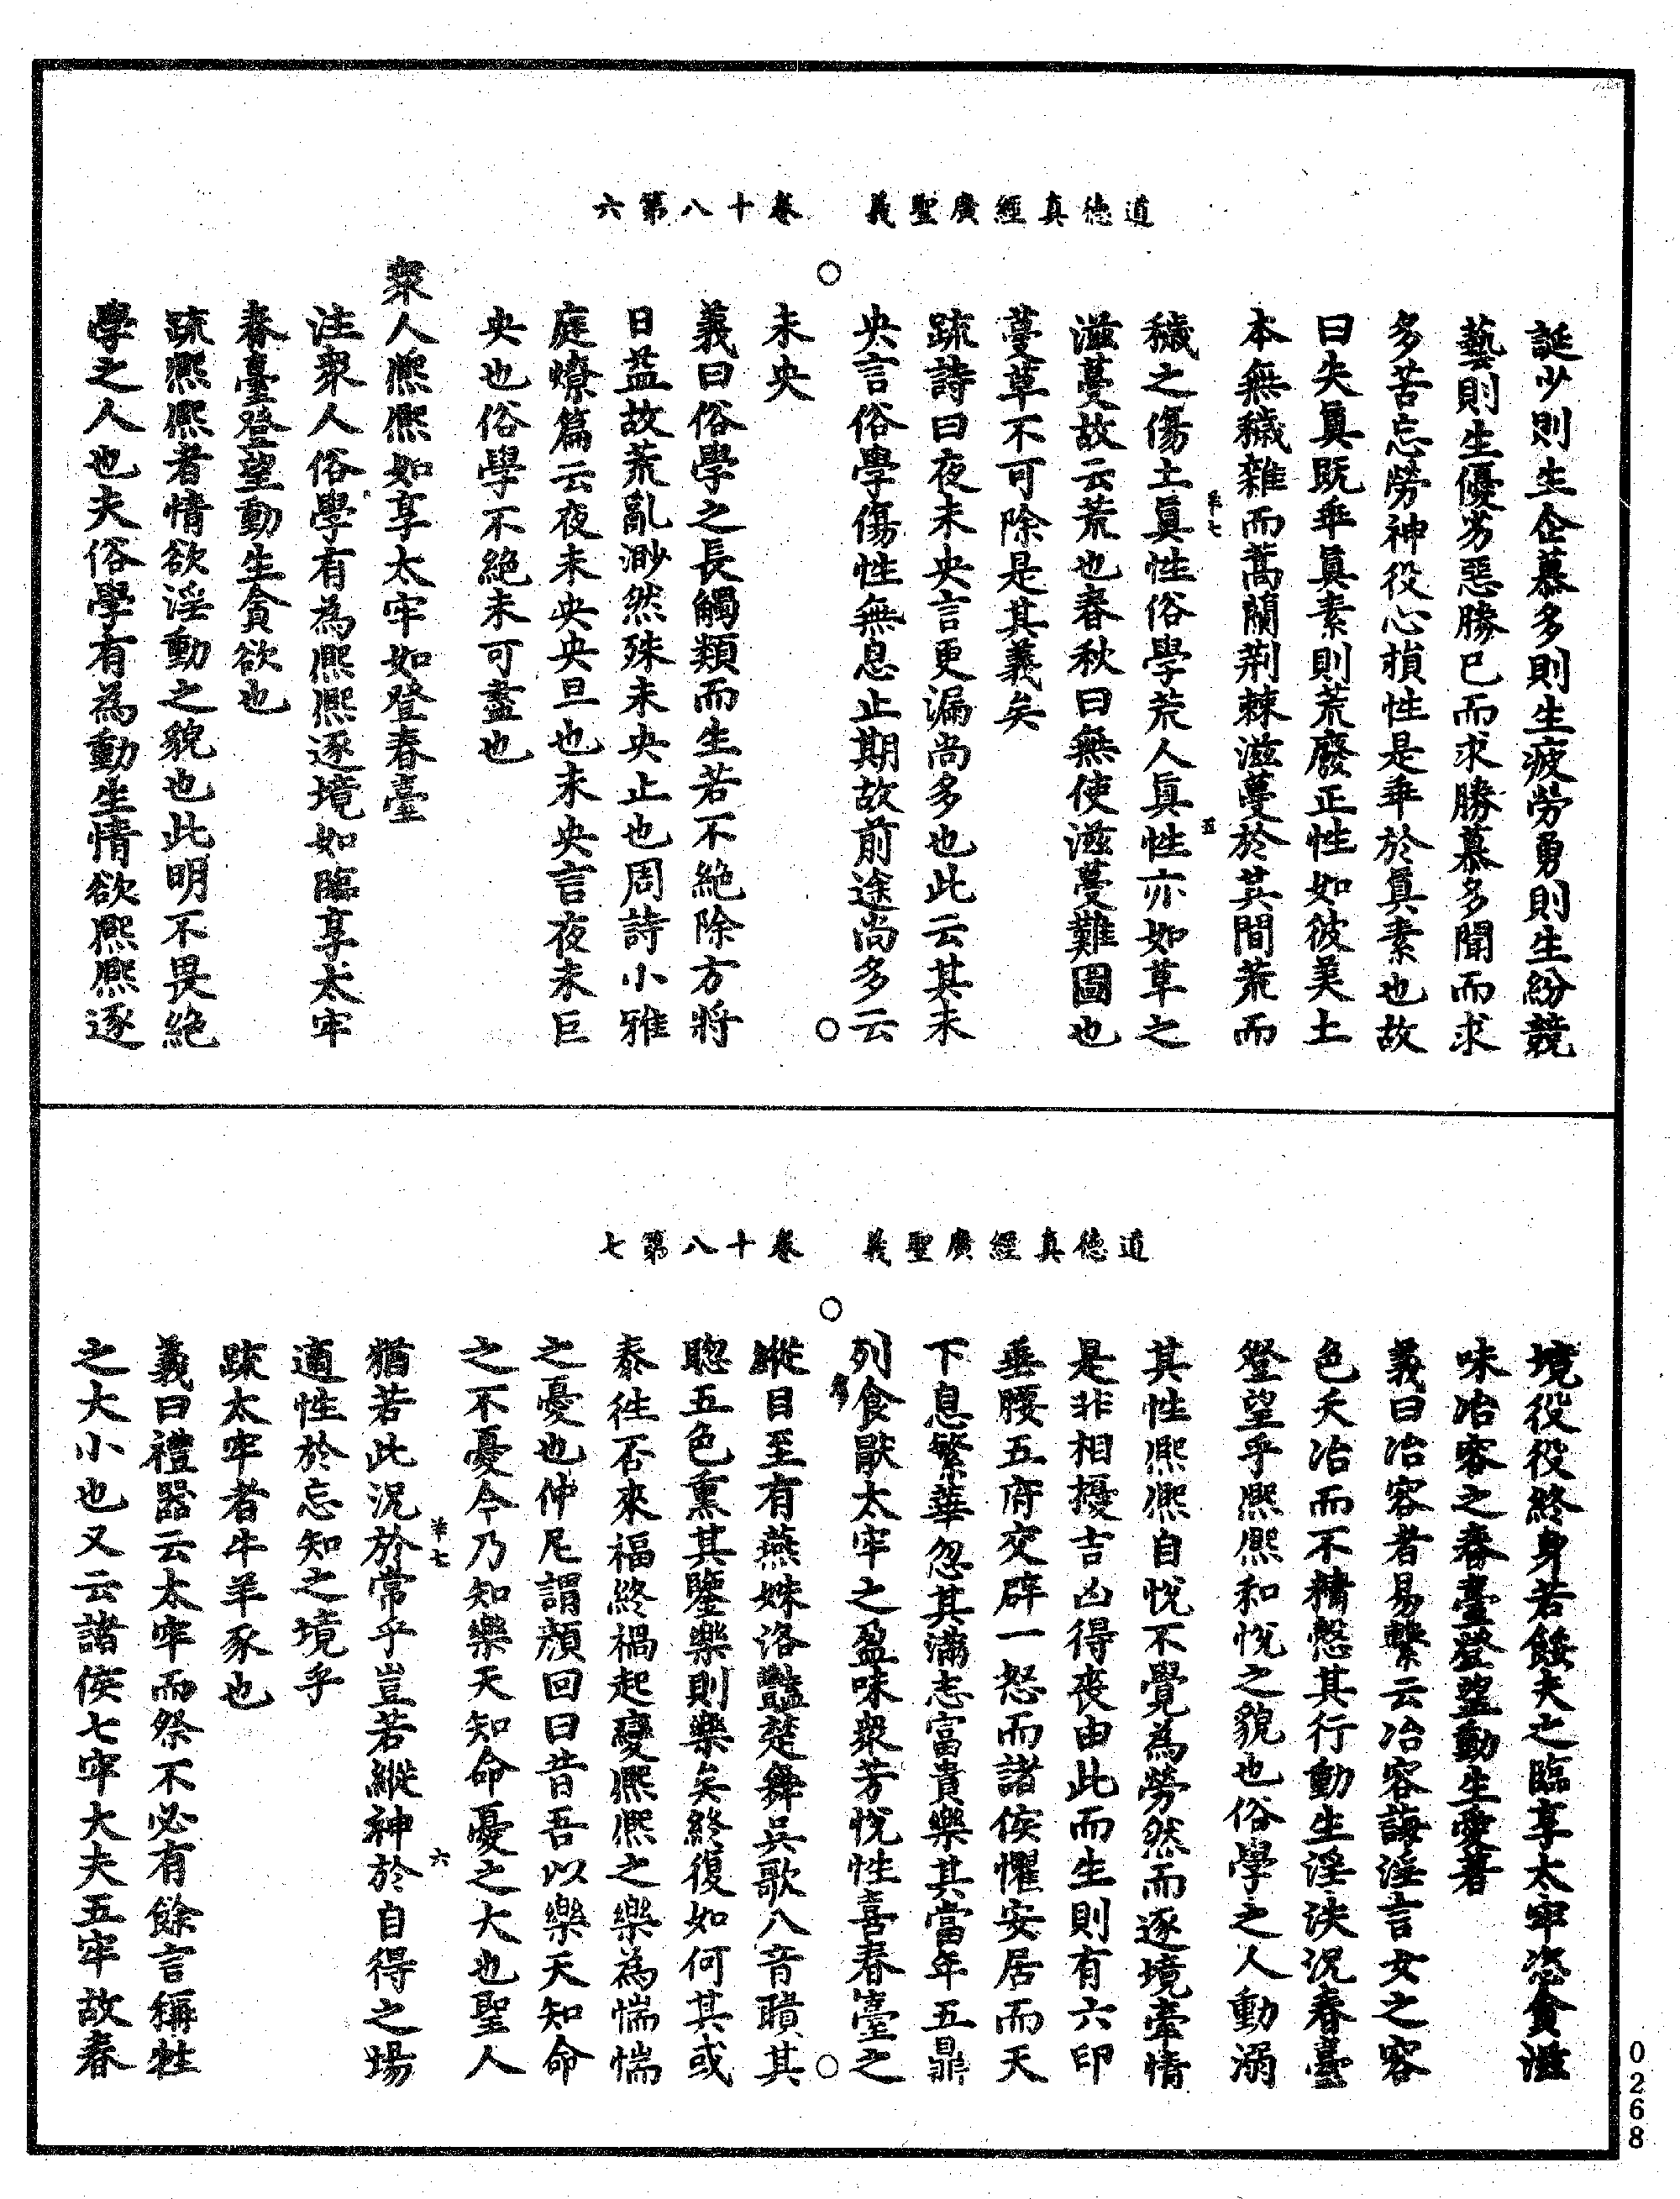 道德真經廣聖義　卷十八第六
誕少則生企慕多則生疲勞勇則生紛競
藝則生優劣惡勝已而求勝慕多聞而求
多苦忘勞神役心損性是乖於真素也故
曰失真既乖真素則荒廢正性如彼美土
本無穢雜而蒿蘭荆棘滋蔓於其間荒而
羊七　五
穢之傷土真性俗學荒人真性亦如草之
滋蔓故云荒也春秋曰無使滋蔓難圖也
蔓草不可除是其義矣
疏詩曰夜未央言更漏尚多也此云其未
央言俗學傷性無息止期故前途尚多云
未央
義曰俗學之長觸類而生若不絕除方將
日益故荒亂渺然殊未央止也周詩小雅
庭燎篇云夜未央央旦也未央言夜未巨
央也俗學不絕未可盡也
眾人熙熙如享太牢如登春臺
注眾人俗學有為熙熙逐境如臨享太牢
春臺登望動生貪欲也
疏熙熙者情欲淫動之貌也此明不畏絕
學之人也夫俗學有為動生情欲熙熙逐
道德真經廣聖義　卷十八第七
境役役終身若餒夫之臨享太牢恣貪滋
味冶容之春臺登望動生愛著
義曰冶容者易繫云冶容誨淫言女之容
色夭冶而不精慤其行動生淫泆況春臺
登望乎熙熙和悅之貌也俗學之人動溺
其性熙熙自悅不覺為勞然而逐境牽情
是非相擾吉凶得喪由此而生則有六印
垂腰五府交辟一怒而諸侯懼安居而天
下息繁華忽其滿志富貴樂其當年五鼎
列食厭太牢之盈味眾芳悅性喜春臺之
縱目至有燕姝洛豔楚舞吳歌八音聵其
聦五色熏其鑒樂則樂矣終復如何其或
泰往否來福終禍起變熙熙之樂為惴惴
之憂也仲尼謂顏回曰昔吾以樂天知命
之不憂今乃知樂天知命憂之大也聖人
羊七　六
猶若此況於常乎豈若縱神於自得之場
適性於忘知之境乎
疏太牢者牛羊豕也
義曰禮器云太牢而祭不必有餘言稱牲
之大小也又云諸侯七牢大夫五牢故春
0268